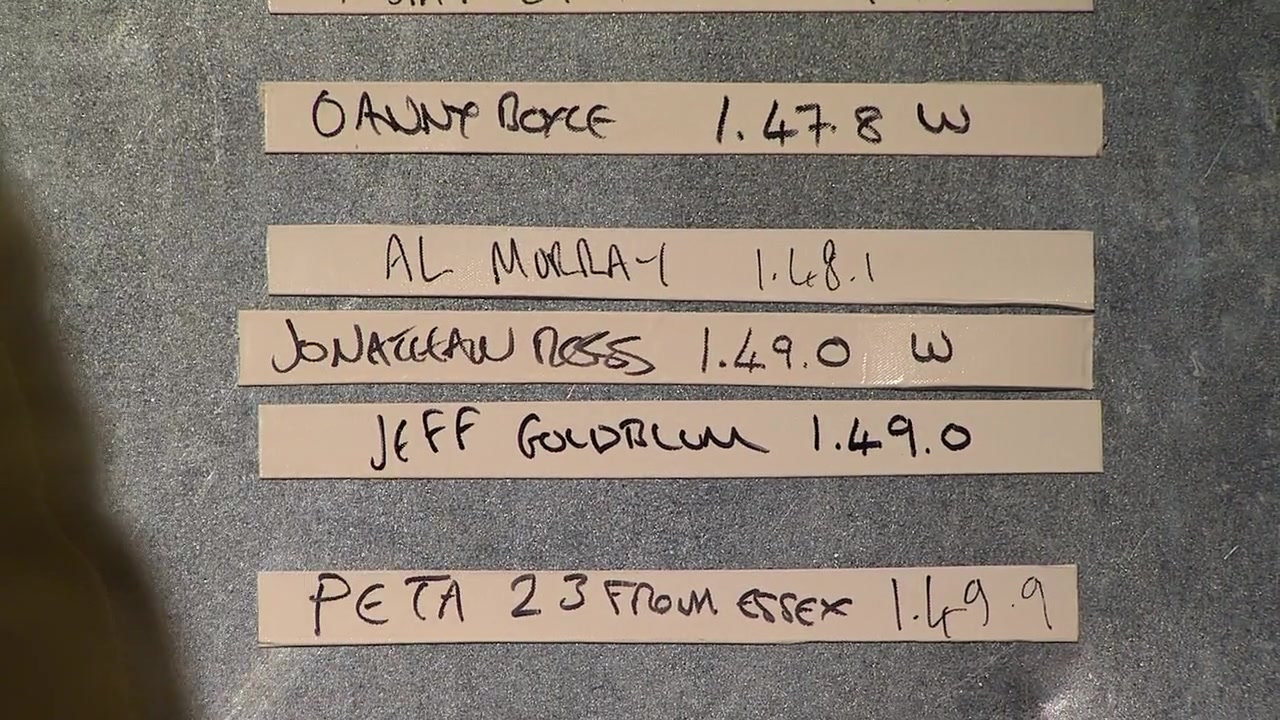 DANNY BOYCE 1.47.8 W
AL MURRAY 1.48.1
JONATHAN ROSS 1.49.0 W
JEFF GOLDBLUM 1.49.0
PETA 23 FROM ESSEX 1.49.9